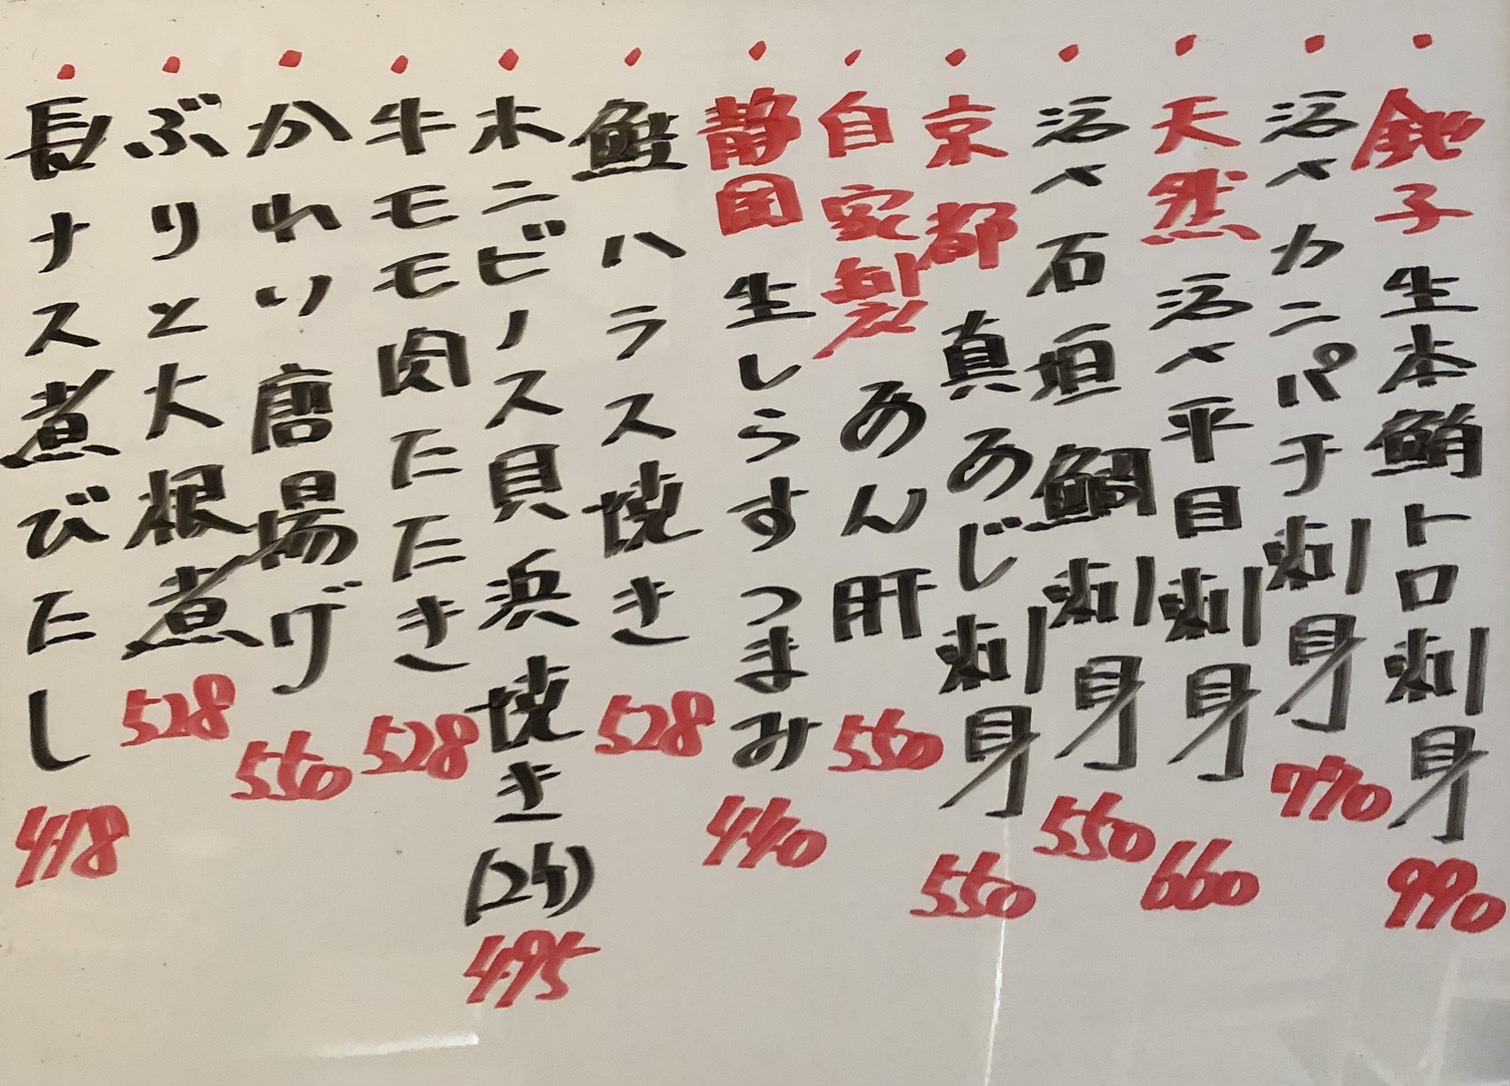 ・銚子 生本鮪トロ刺身 990
・活〆カンパチ刺身 770
・天然 活〆平目刺身 660
・活〆石垣鯛刺身 550
・京都 真あじ刺身 550
・自家製 あん肝 550
・静岡 生しらすつまみ 440
・鮭ハラス焼き 528
・ホンビノス貝浜焼き(2ケ) 495
・牛モモ肉たたき 528
・かれい唐揚げ 550
・ぶりと大根煮 528
・長ナス煮びたし 418